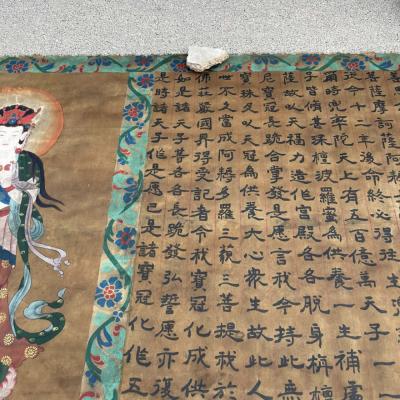 菩薩摩訶薩阿
從今十二年後命終必得往生兜
爾時兜率陀天上有五百億萬天子一一
子皆脩甚深檀波羅蜜為供養一生補處
薩故以天福力造作宮殿各各脫身栴檀
尼寶冠長跪合掌發是願言我今持此無
寶珠及以天冠為供養大心眾生故此人
世不久當成阿耨多羅三藐三菩提我於
佛莊嚴國界得受記者令我寶冠化成供
如是諸天子等各各長跪發弘誓願亦復
是時諸天子作是願已是諸寶冠化作五